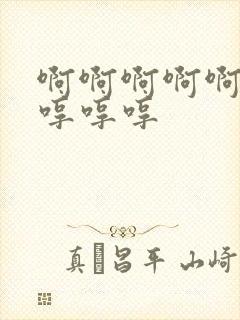 啊啊啊啊啊
哼哼哼
真昌平 山崎